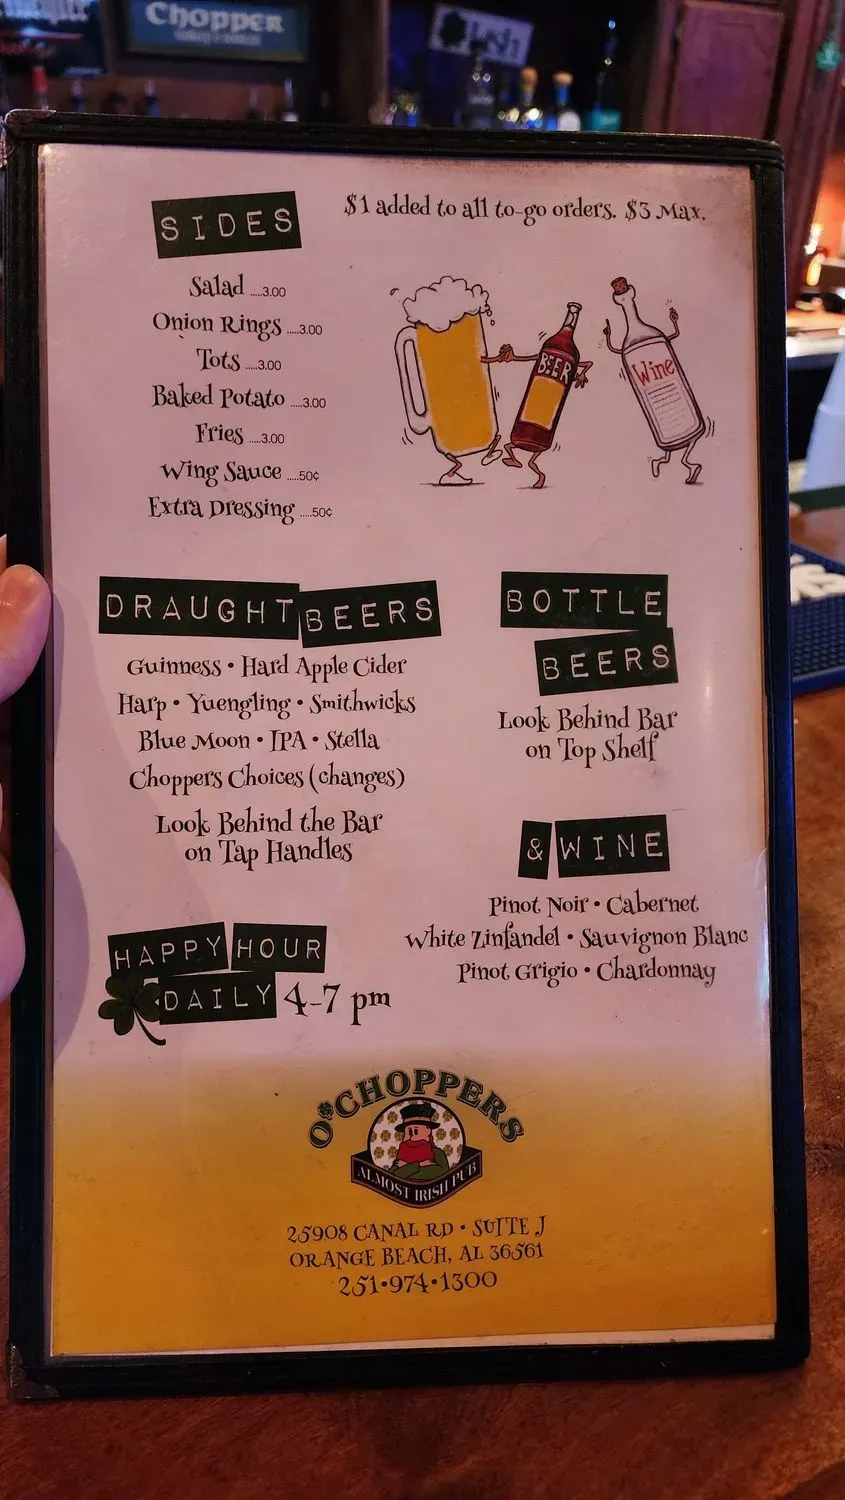 Chopper
Irish
SIDES
$1 added to all to-go orders. $3 Max.
Salad .....3.00
Onion Rings .....3.00
Tots .....3.00
Baked Potato .....3.00
Fries .....3.00
Wing Sauce .....50¢
Extra Dressing .....50¢
BEER
Wine
DRAUGHT BEERS
Guinness • Hard Apple Cider
Harp • Yuengling • Smithwicks
Blue Moon • IPA • Stella
Choppers Choices (changes)
Look Behind the Bar
on Tap Handles
BOTTLE
BEERS
Look Behind Bar
on Top Shelf
& WINE
Pinot Noir • Cabernet
White Zinfandel • Sauvignon Blanc
Pinot Grigio • Chardonnay
HAPPY HOUR
DAILY 4-7 pm
O'CHOPPERS
ALMOST IRISH PUB
25908 CANAL RD • SUITE J
ORANGE BEACH, AL 36561
251•974•1300